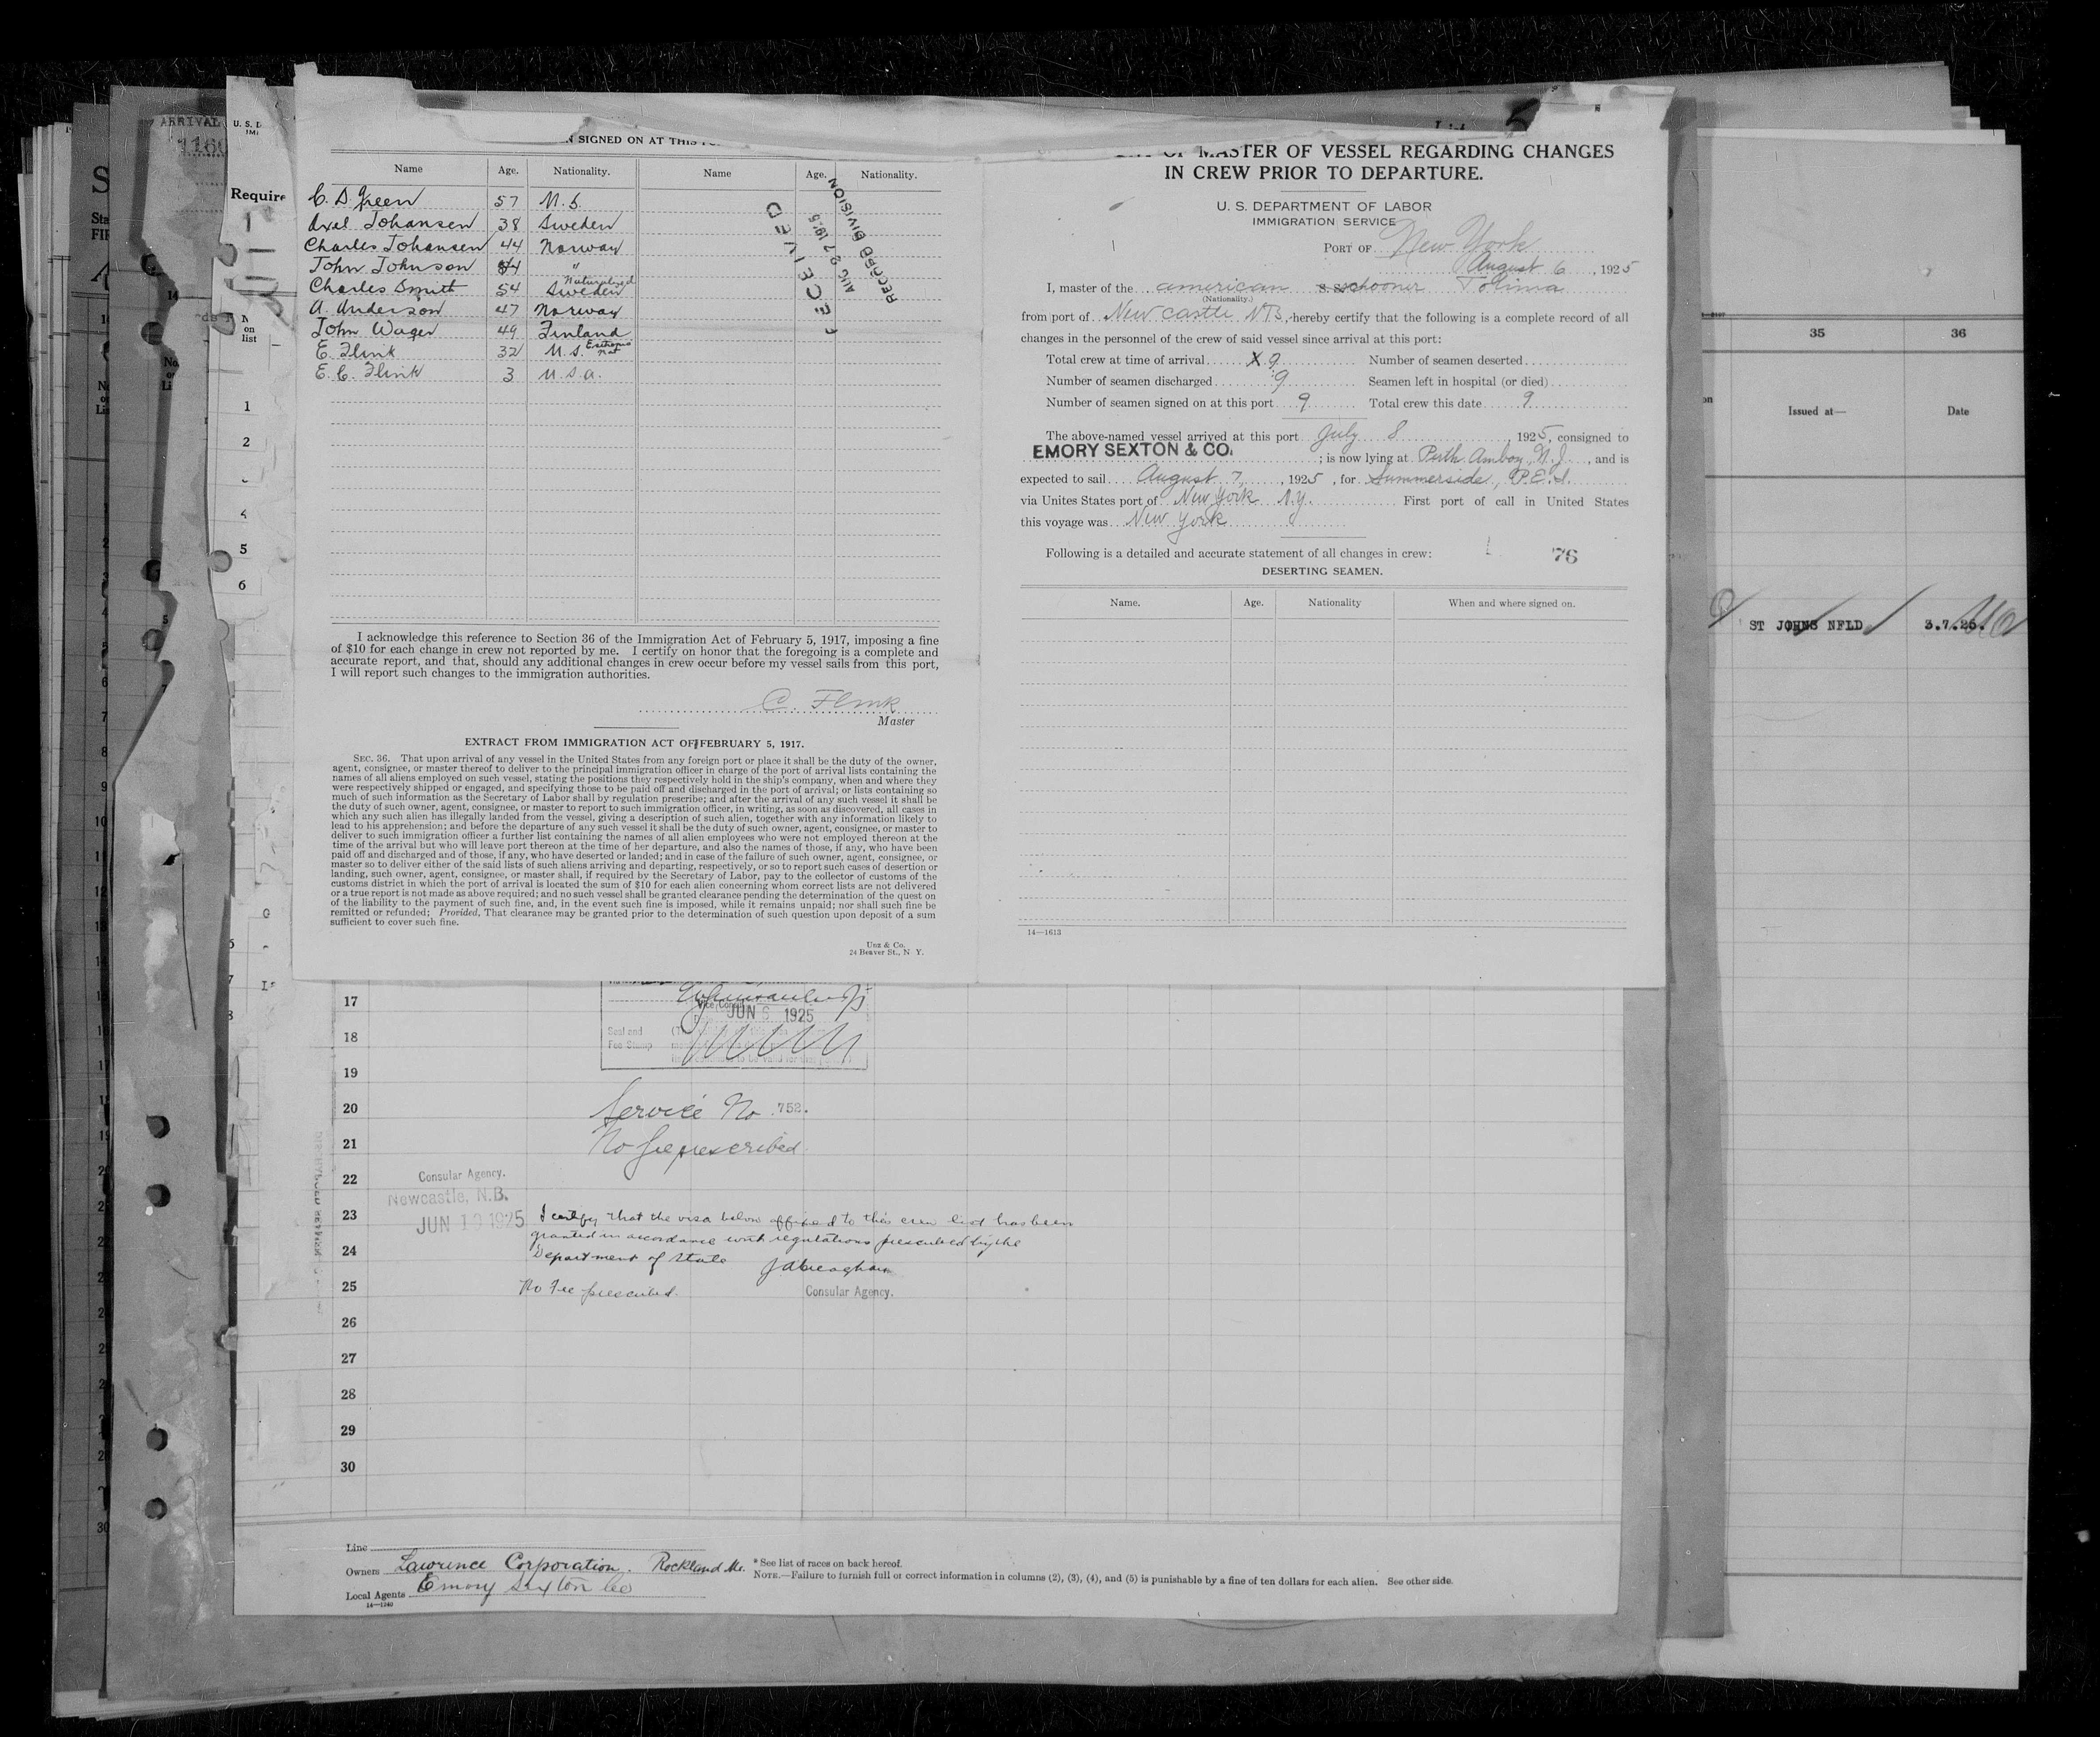 SIGNED ON AT THIS
Name Age. Nationality. Name Age. Nationality.
C. D. Green 57 U.S.
Axel Johansen 38 Sweden
Charles Johansen 44 Norway
John Johnson 34 "
Charles Smith 54 Naturalized Sweden
A. Anderson 47 Norway
John Wager 49 Finland
E. Flink 32 U.S.
E. C. Flink 3 U.S.A.
RECEIVED
AUG 27 1925
RECORD DIVISION
I acknowledge this reference to Section 36 of the Immigration Act of February 5, 1917, imposing a fine
of $10 for each change in crew not reported by me. I certify on honor that the foregoing is a complete and
accurate report, and that, should any additional changes in crew occur before my vessel sails from this port,
I will report such changes to the immigration authorities.
C. Flink
Master
EXTRACT FROM IMMIGRATION ACT OF FEBRUARY 5, 1917.
SEC. 36. That upon arrival of any vessel in the United States from any foreign port or place it shall be the duty of the owner,
agent, consignee, or master thereof to deliver to the principal immigration officer in charge of the port of arrival lists containing the
names of all aliens employed on such vessel, stating the positions they respectively hold in the ship's company, when and where they
were respectively shipped or engaged, and specifying those to be paid off and discharged in the port of arrival; or lists containing so
much of such information as the Secretary of Labor shall by regulation prescribe; and after the arrival of any such vessel it shall be
the duty of such owner, agent, consignee, or master to report to such immigration officer, in writing, as soon as discovered, all cases in
which any such alien has illegally landed from the vessel, giving a description of such alien, together with any information likely to
lead to his apprehension; and before the departure of any such vessel it shall be the duty of such owner, agent, consignee, or master to
deliver to such immigration officer a further list containing the names of all alien employees who were not employed thereon at the
time of the arrival but who will leave port thereon at the time of her departure, and also the names of those, if any, who have been
paid off and discharged and of those, if any, who have deserted or landed; and in case of the failure of such owner, agent, consignee, or
master so to deliver either of the said lists of such aliens arriving and departing, respectively, or so to report such cases of desertion or
landing, such owner, agent, consignee, or master shall, if required by the Secretary of Labor, pay to the collector of customs of the
customs district in which the port of arrival is located the sum of $10 for each alien concerning whom correct lists are not delivered
or a true report is not made as above required; and no such vessel shall be granted clearance pending the determination of the quest on
of the liability to the payment of such fine, and, in the event such fine is imposed, while it remains unpaid; nor shall such fine be
remitted or refunded; Provided, That clearance may be granted prior to the determination of such question upon deposit of a sum
sufficient to cover such fine.
Unz & Co.
24 Beaver St., N Y.
OF MASTER OF VESSEL REGARDING CHANGES
IN CREW PRIOR TO DEPARTURE.
U. S. DEPARTMENT OF LABOR
IMMIGRATION SERVICE
PORT OF New York
August 6, 1925
I, master of the american S. S. schooner Tolima
(Nationality.)
from port of New castle NB, hereby certify that the following is a complete record of all
changes in the personnel of the crew of said vessel since arrival at this port:
Total crew at time of arrival X 9 Number of seamen deserted
Number of seamen discharged 9 Seamen left in hospital (or died)
Number of seamen signed on at this port 9 Total crew this date 9
The above-named vessel arrived at this port July 8, 1925, consigned to
EMORY SEXTON & CO. ; is now lying at Perth Amboy, N.J., and is
expected to sail August 7, 1925, for Summerside, P.E.I.
via Unites States port of New York N.Y. First port of call in United States
this voyage was New York
Following is a detailed and accurate statement of all changes in crew: 76
DESERTING SEAMEN.
Name. Age. Nationality When and where signed on.
14—1613
ARRIVAL
1160
U. S. D
Require
on
list
1
2
4
5
6
35 36
Issued at— Date
ST JOHNS NFLD 3.7.25.
17
Vice Consul
JUN 6 1925
18
Seal and
Fee Stamp
19
20 Service No 752.
21 No fee prescribed
22 Consular Agency.
Newcastle, N.B.
JUN 19 1925
23 I certify that the visa below affixed to this crew list has been
granted in accordance with regulations prescribed by the
24 Department of State
25 No Fee prescribed. Consular Agency.
26
27
28
29
30
Line
Owners Lawrence Corporation. Rockland Me.
Local Agents Emory Sexton Co
14—1240
*See list of races on back hereof.
NOTE.—Failure to furnish full or correct information in columns (2), (3), (4), and (5) is punishable by a fine of ten dollars for each alien. See other side.